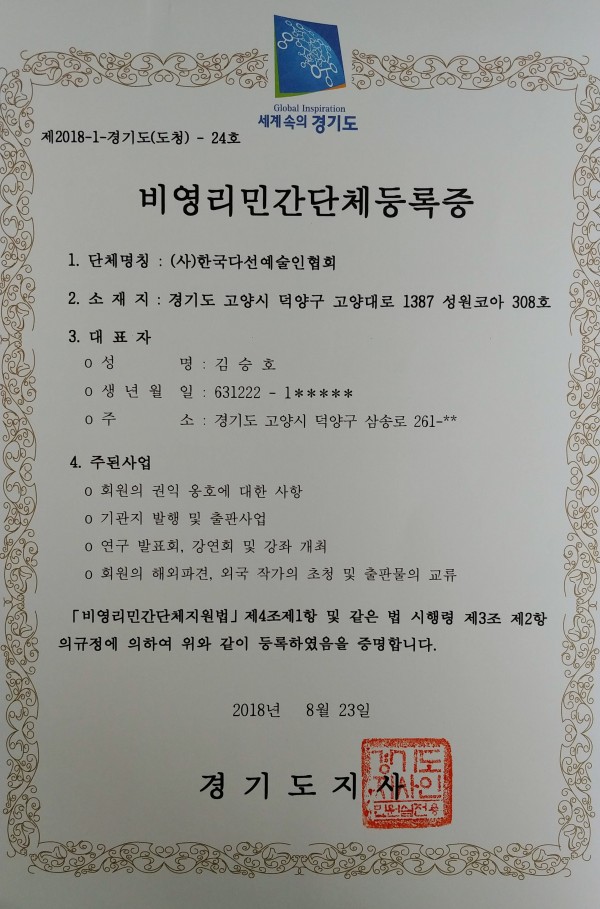 Global Inspiration
세계 속의 경기도
제2018-1-경기도(도청) - 24호
비영리민간단체등록증
1. 단체명칭 : (사)한국다선예술인협회
2. 소 재 지 : 경기도 고양시 덕양구 고양대로 1387 성원코아 308호
3. 대 표 자
o 성 명 : 김 승 호
o 생 년 월 일 : 631222 - 1*****
o 주 소 : 경기도 고양시 덕양구 삼송로 261-**
4. 주된사업
o 회원의 권익 옹호에 대한 사항
o 기관지 발행 및 출판사업
o 연구 발표회, 강연회 및 강좌 개최
o 회원의 해외파견, 외국 작가의 초청 및 출판물의 교류
「비영리민간단체지원법」제4조제1항 및 같은 법 시행령 제3조 제2항
의규정에 의하여 위와 같이 등록하였음을 증명합니다.
2018년 8월 23일
경 기 도 지 사
경기도
지사인
민원실전용